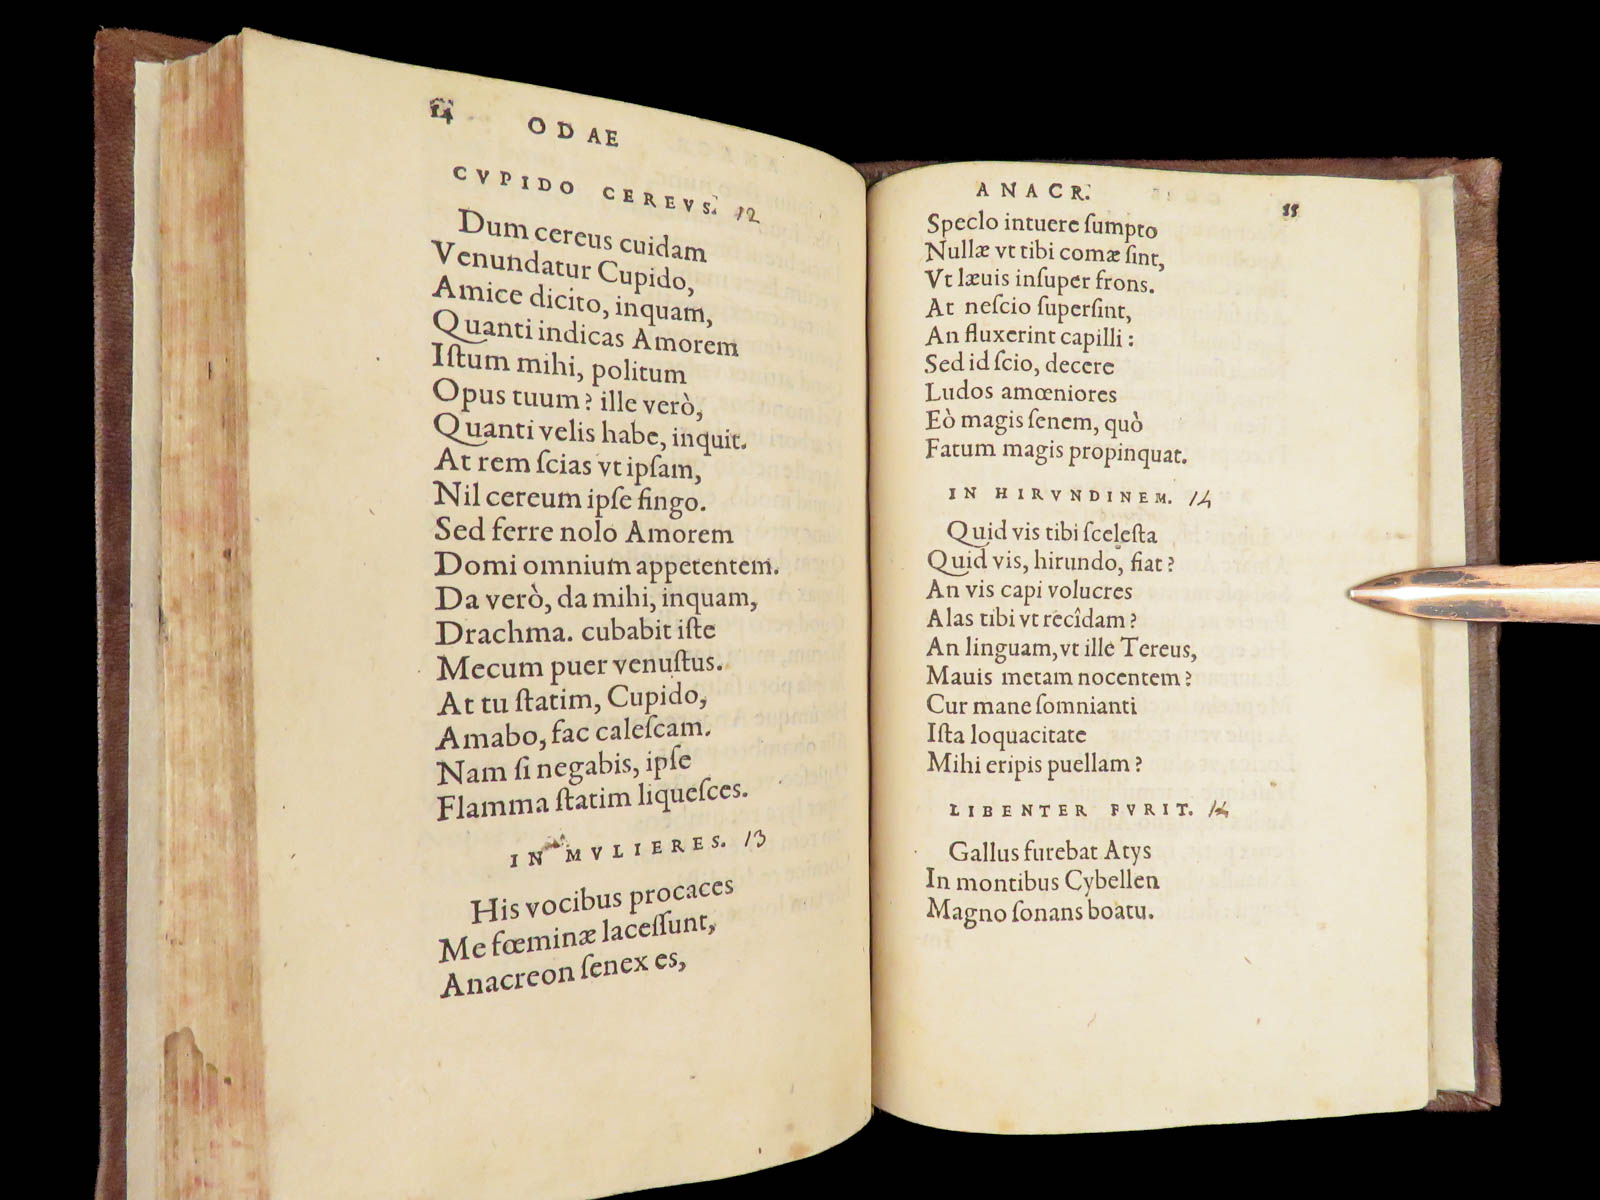 14 ODAE
CVPIDO CEREVS. 12
Dum cereus cuidam
Venundatur Cupido,
Amice dicito, inquam,
Quanti indicas Amorem
Iſtum mihi, politum
Opus tuum? ille verò,
Quanti velis habe, inquit.
At rem ſcias vt ipſam,
Nil cereum ipſe fingo.
Sed ferre nolo Amorem
Domi omnium appetentem.
Da verò, da mihi, inquam,
Drachma. cubabit iſte
Mecum puer venuſtus.
At tu ſtatim, Cupido,
Amabo, fac caleſcam.
Nam ſi negabis, ipſe
Flamma ſtatim liqueſces.
IN MVLIERES. 13
His vocibus procaces
Me fœminæ laceſſunt,
Anacreon ſenex es,
ANACR. 15
Speclo intuere ſumpto
Nullæ vt tibi comæ ſint,
Vt læuis inſuper frons.
At neſcio ſuperſint,
An fluxerint capilli:
Sed id ſcio, decere
Ludos amœniores
Eò magis ſenem, quò
Fatum magis propinquat.
IN HIRVNDINEM. 14
Quid vis tibi ſceleſta
Quid vis, hirundo, fiat?
An vis capi volucres
Alas tibi vt recîdam?
An linguam, vt ille Tereus,
Mauis metam nocentem?
Cur mane ſomnianti
Iſta loquacitate
Mihi eripis puellam?
LIBENTER FVRIT. 14
Gallus furebat Atys
In montibus Cybellen
Magno ſonans boatu.